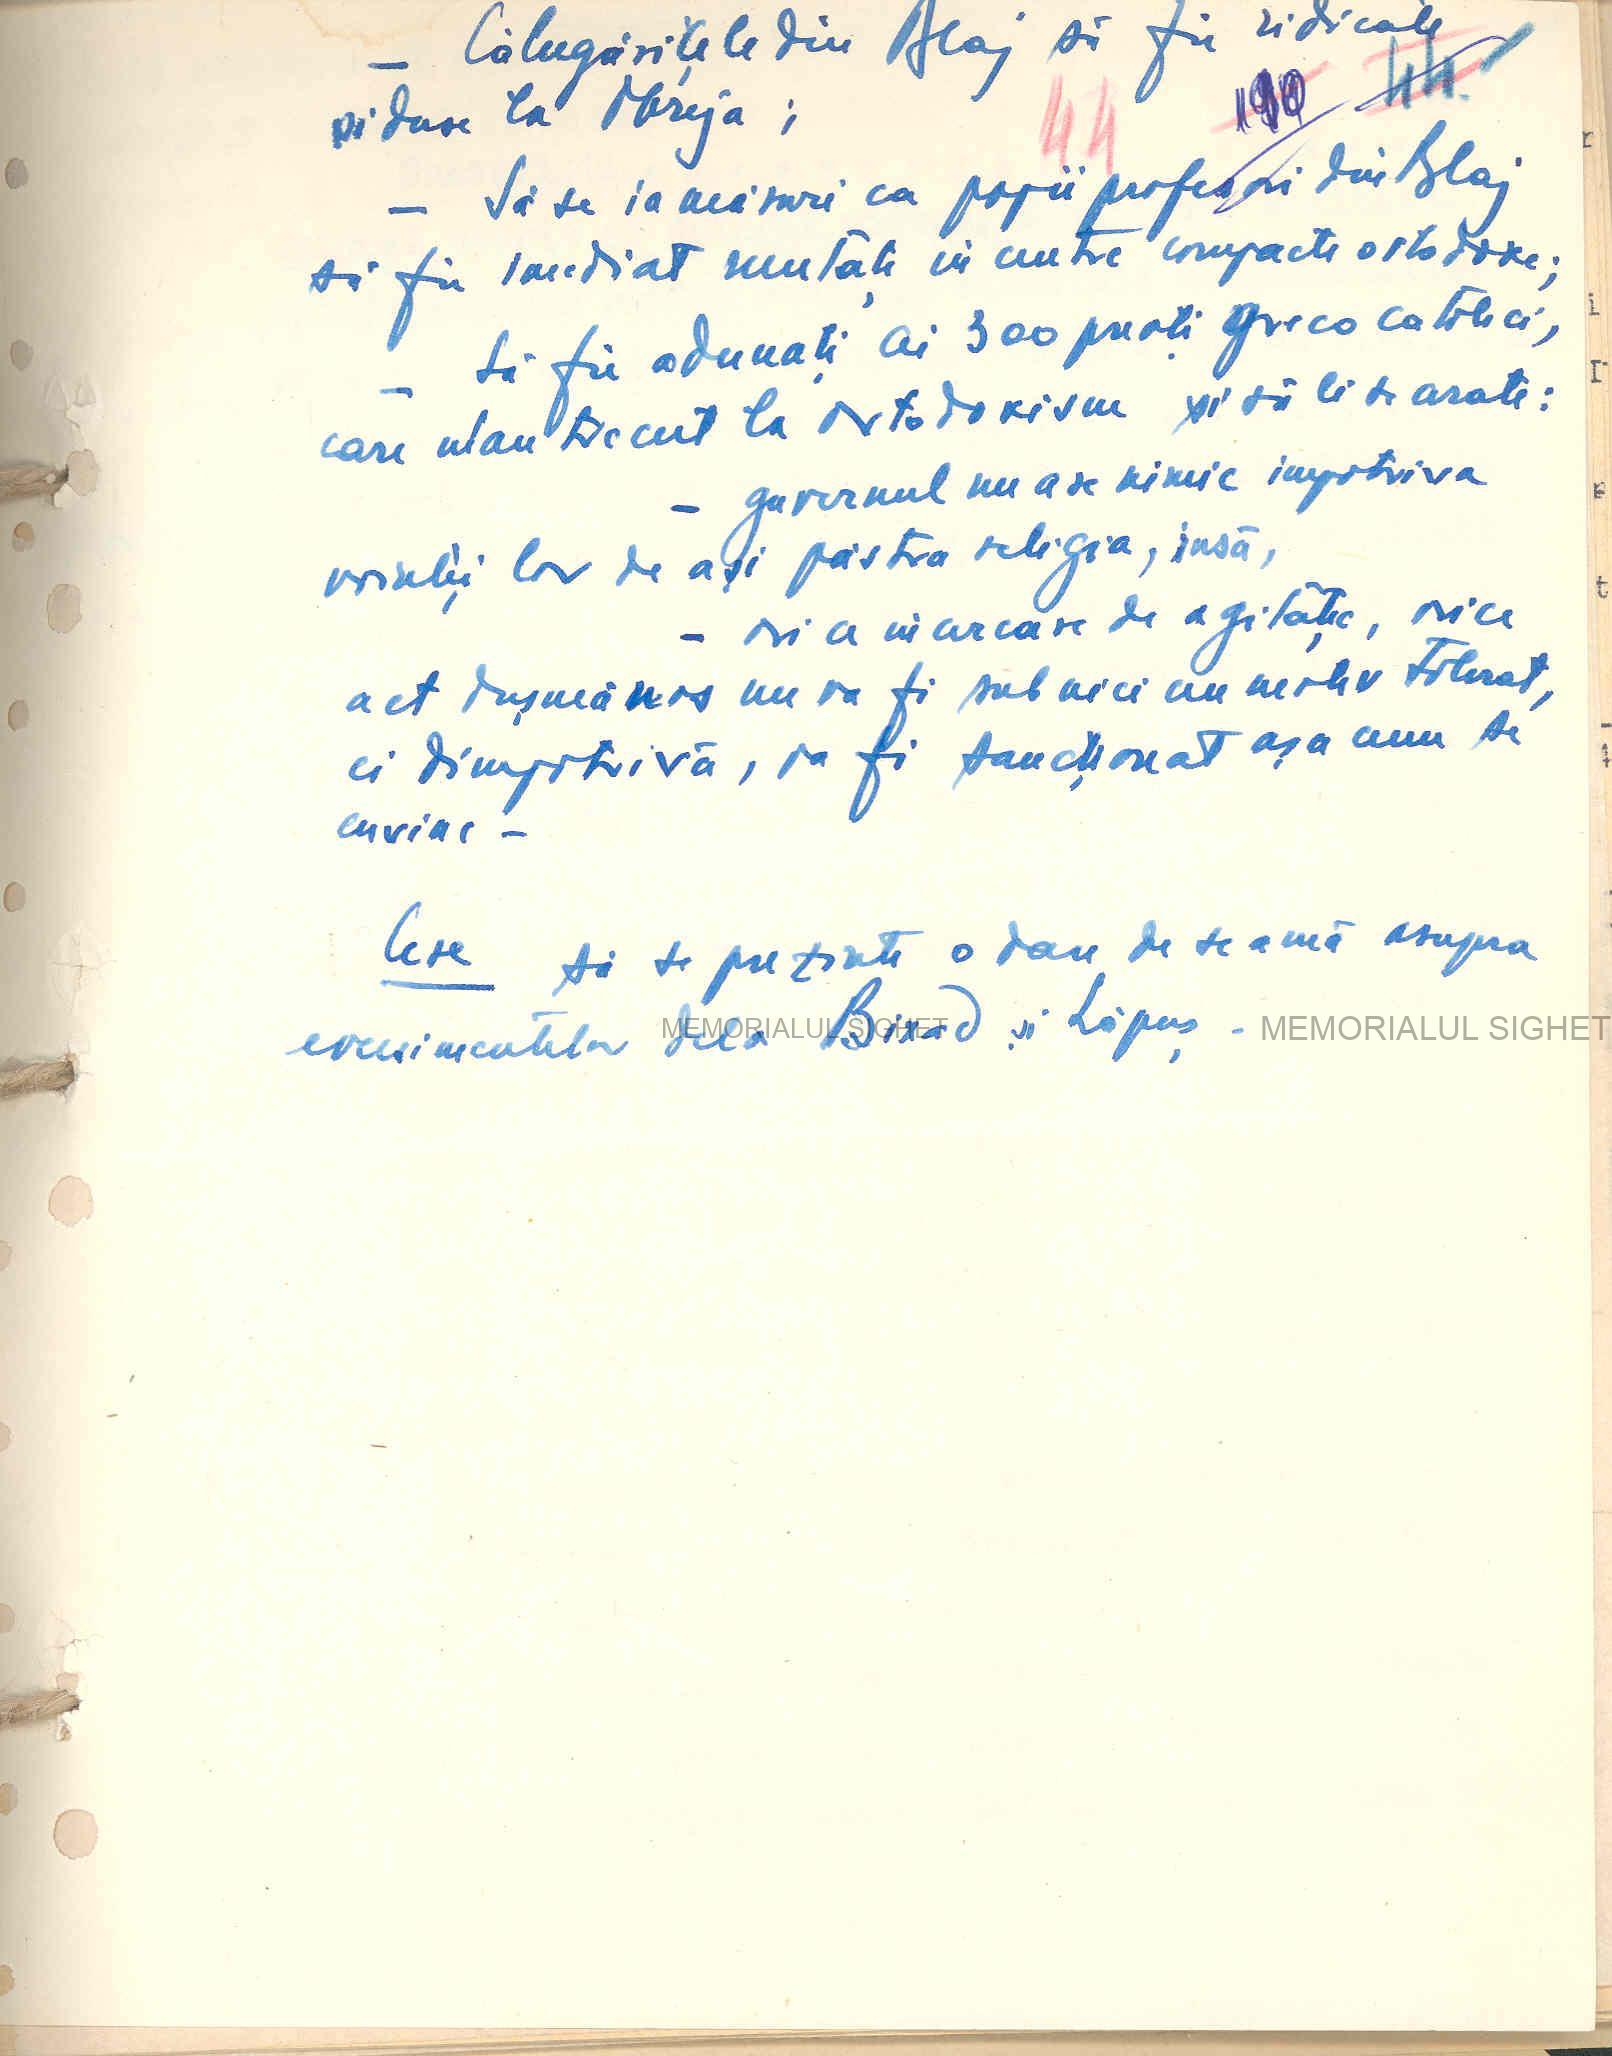 - Călugărițele din Blaj să fie ridicate
și duse la Obreja;
44
44.
- Să se ia măsuri ca popii profesori din Blaj
să fie imediat mutați în centre compacte ortodoxe;
- Să fie adunați cei 300 preoți greco catolici,
care n'au trecut la ortodoxism și să li se arate:
- guvernul nu are nimic împotriva
voinței lor de a și păstra religia, însă,
- orice încercare de agitație, orice
act dușmănos nu va fi sub nici un motiv tolerat,
ci dimpotrivă, va fi sancționat așa cum se
cuvine -
să se prezinte o dare de seamă asupra
evenimentelor dela Bixad și Lăpuș -
MEMORIALUL SIGHET
MEMORIALUL SIGHET